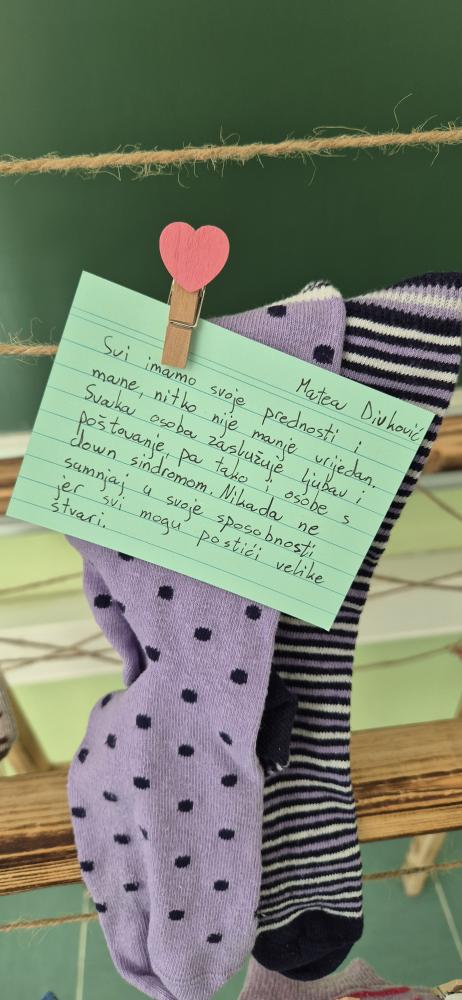 Matea Divković
Svi imamo svoje prednosti i
mane, nitko nije manje vrijedan.
Svaka osoba zaslužuje ljubav i
poštovanje, pa tako i osobe s
down sindromom. Nikada ne
samnjaj u svoje sposobnosti
jer svi mogu postići velike
stvari.